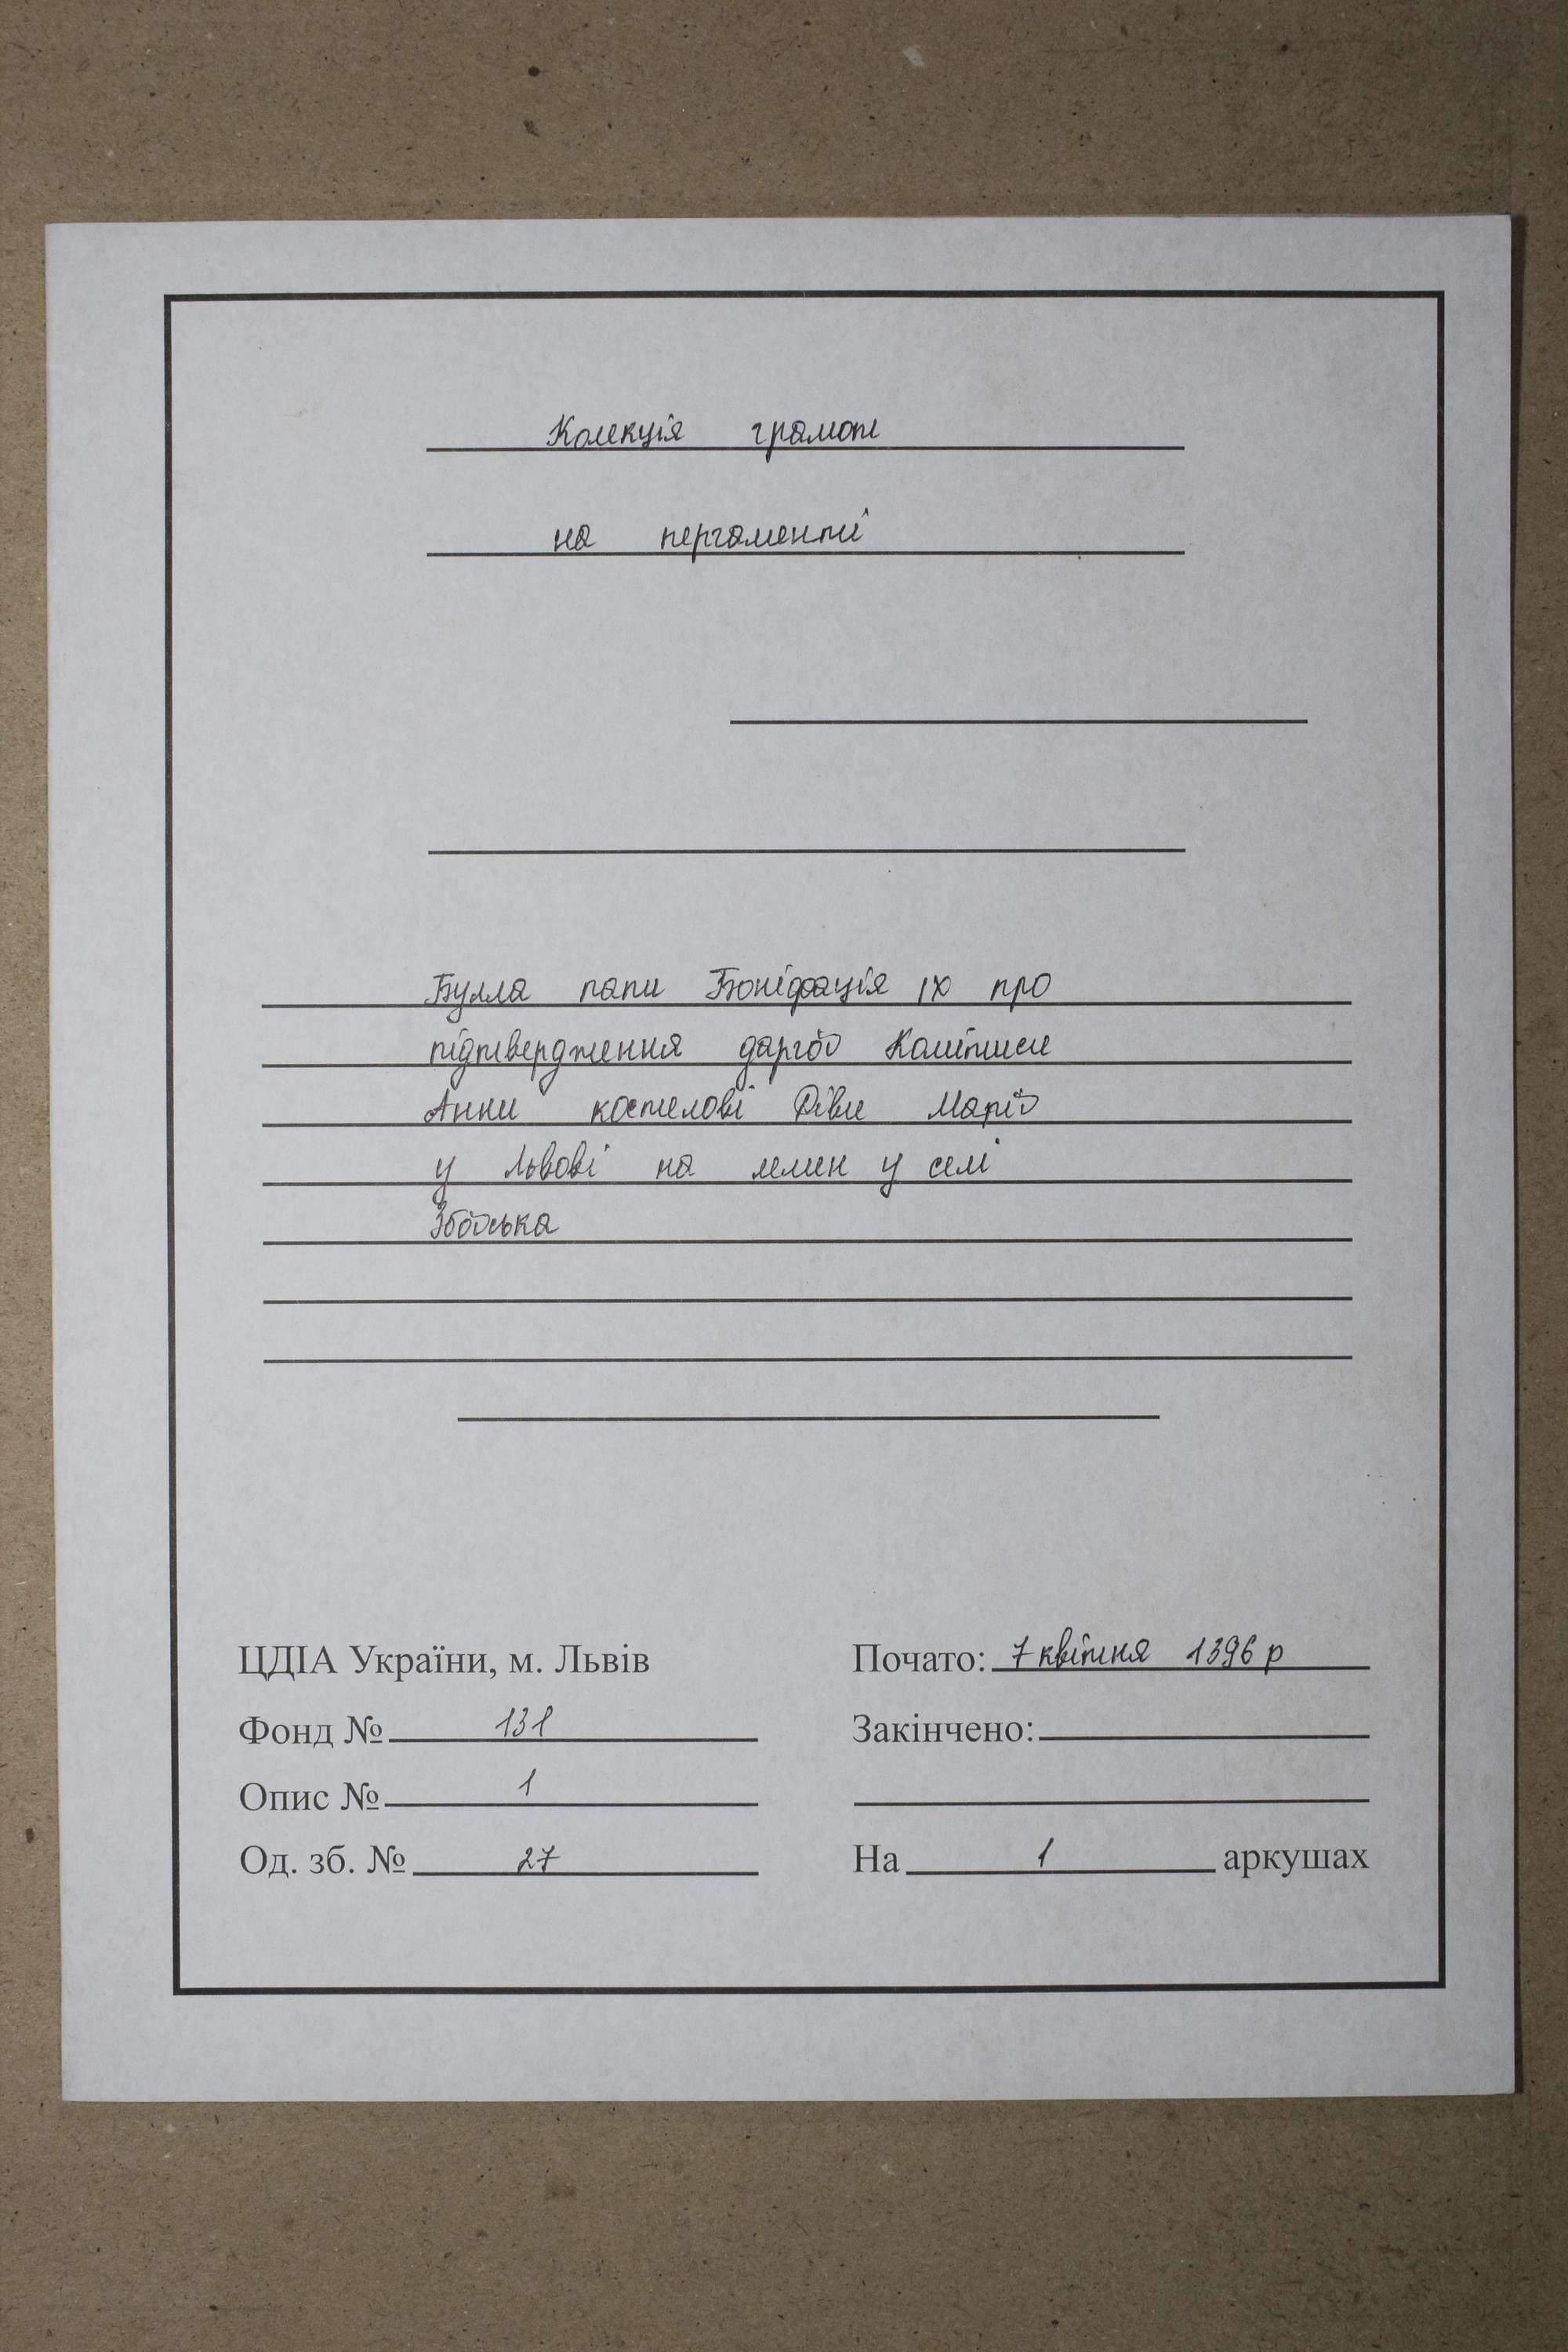 Колекція грамот
на пергаменті
Булла папи Боніфація ІХ про
підтвердження
Анни костелові Діви Марії
у Львові на млин у селі
Збоїська
ЦДІА України, м. Львів
Фонд № 131
Опис № 1
Од. зб. № 27
Почато: 7 квітня 1396 р
Закінчено:
На 1 аркушах